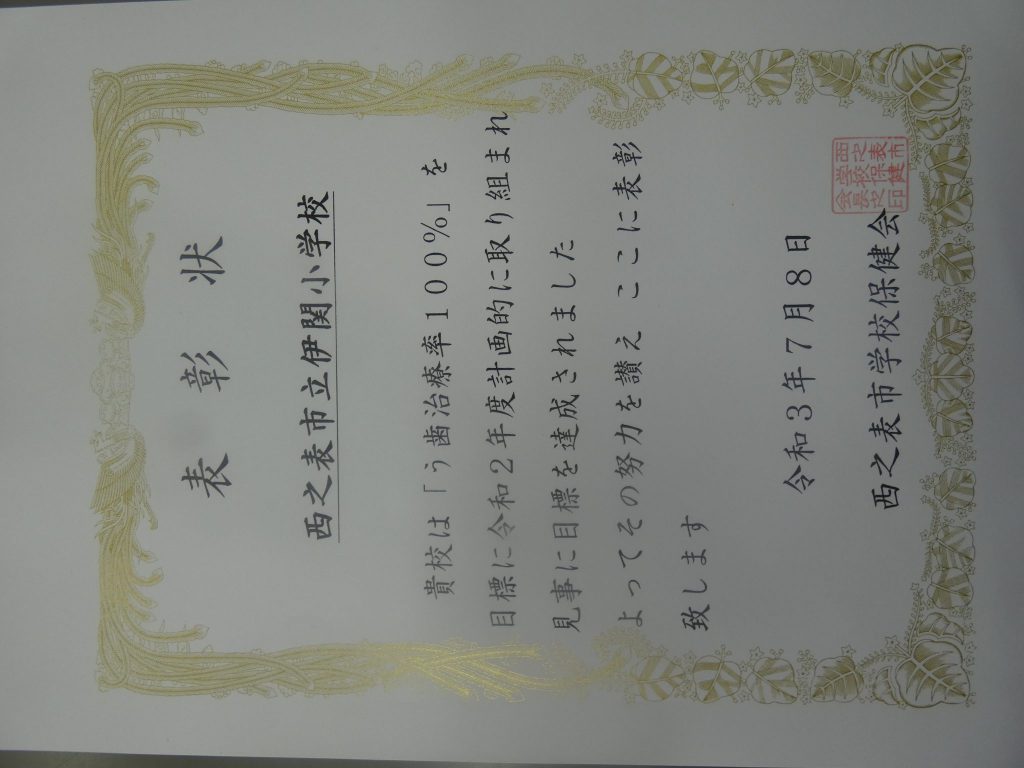 表彰状
西之表市立伊関小学校
貴校は「う歯治療率100％」を
目標に令和2年度計画的に取り組まれ
見事に目標を達成されました
よってその努力を讃え ここに表彰
致します
令和3年7月8日
西之表市学校保健会
西之表市学校保健会之印